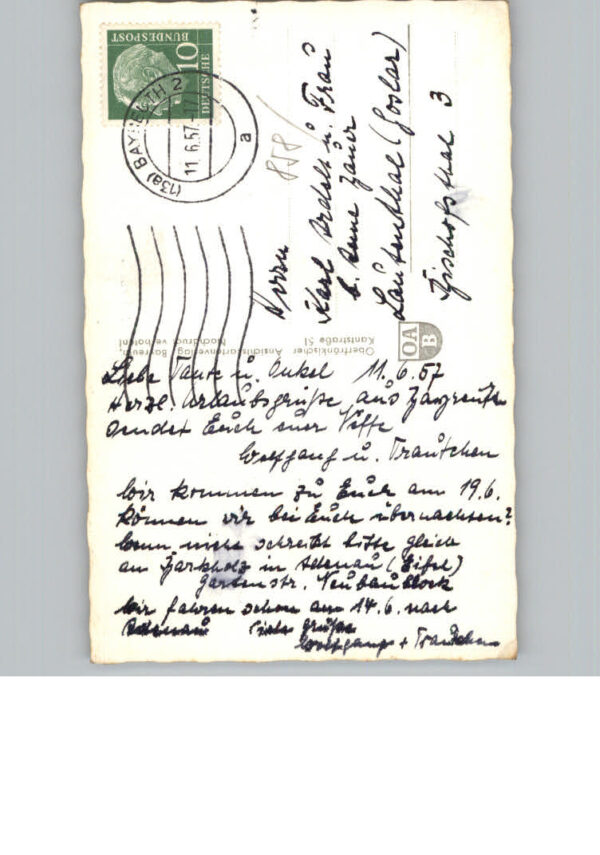 DEUTSCHE
BUNDESPOST
10
(13a) BAYREUTH 2
11.6.57.-17
a
858
Herrn
Karl Ardelt u. Frau
b. Anne Zauer
Lautenthal (Goslar)
Bischofsthal 3
Oberfränkischer Ansichtskartenverlag Bayreuth,
Kantstraße 51 Nachdruck verboten
OA
B
Liebe Tante u. Onkel 11.6.57
Herzl. Urlaubsgrüße aus Bayreuth
sendet Euch euer Neffe
Wolfgang u. Trautchen
Wir kommen zu Euch am 19.6.
können wir bei Euch übernachten?
Wenn nicht schreibt bitte gleich
an in Adenau (Eifel)
Gartenstr. Neubaublock
Wir fahren schon am 14.6. nach
Adenau Viele Grüße
Wolfgang + Trautchen